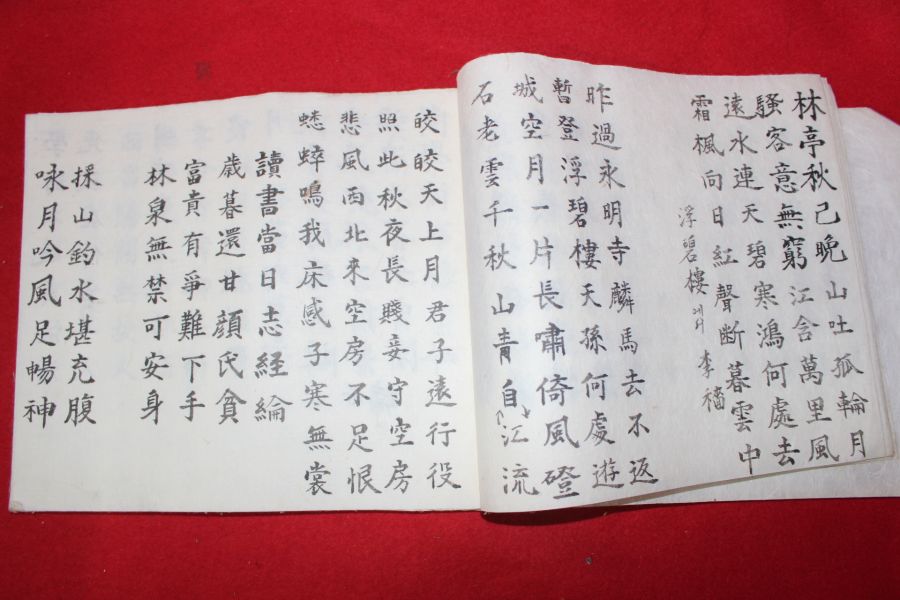 林亭秋己晚山吐孤輪月
騷客意無窮江含萬里風
遠水連天碧寒鴻何處去
霜楓向日紅聲断暮雲中
浮碧樓에서 李穡
昨過永明寺麟馬去不返
暫登浮碧樓天孫何處遊
城空月一片長嘯倚風磴
石老雲千秋山青自江流
皎皎天上月君子遠行役
照此秋夜長賤妾守空房
悲風西北來空房不足恨
蟋蟀鳴我床感子寒無裳
讀書當日志経綸
歳暮還甘顔氏貧
富貴有爭難下手
林泉無禁可安身
採山釣水堪充腹
咏月吟風足暢神